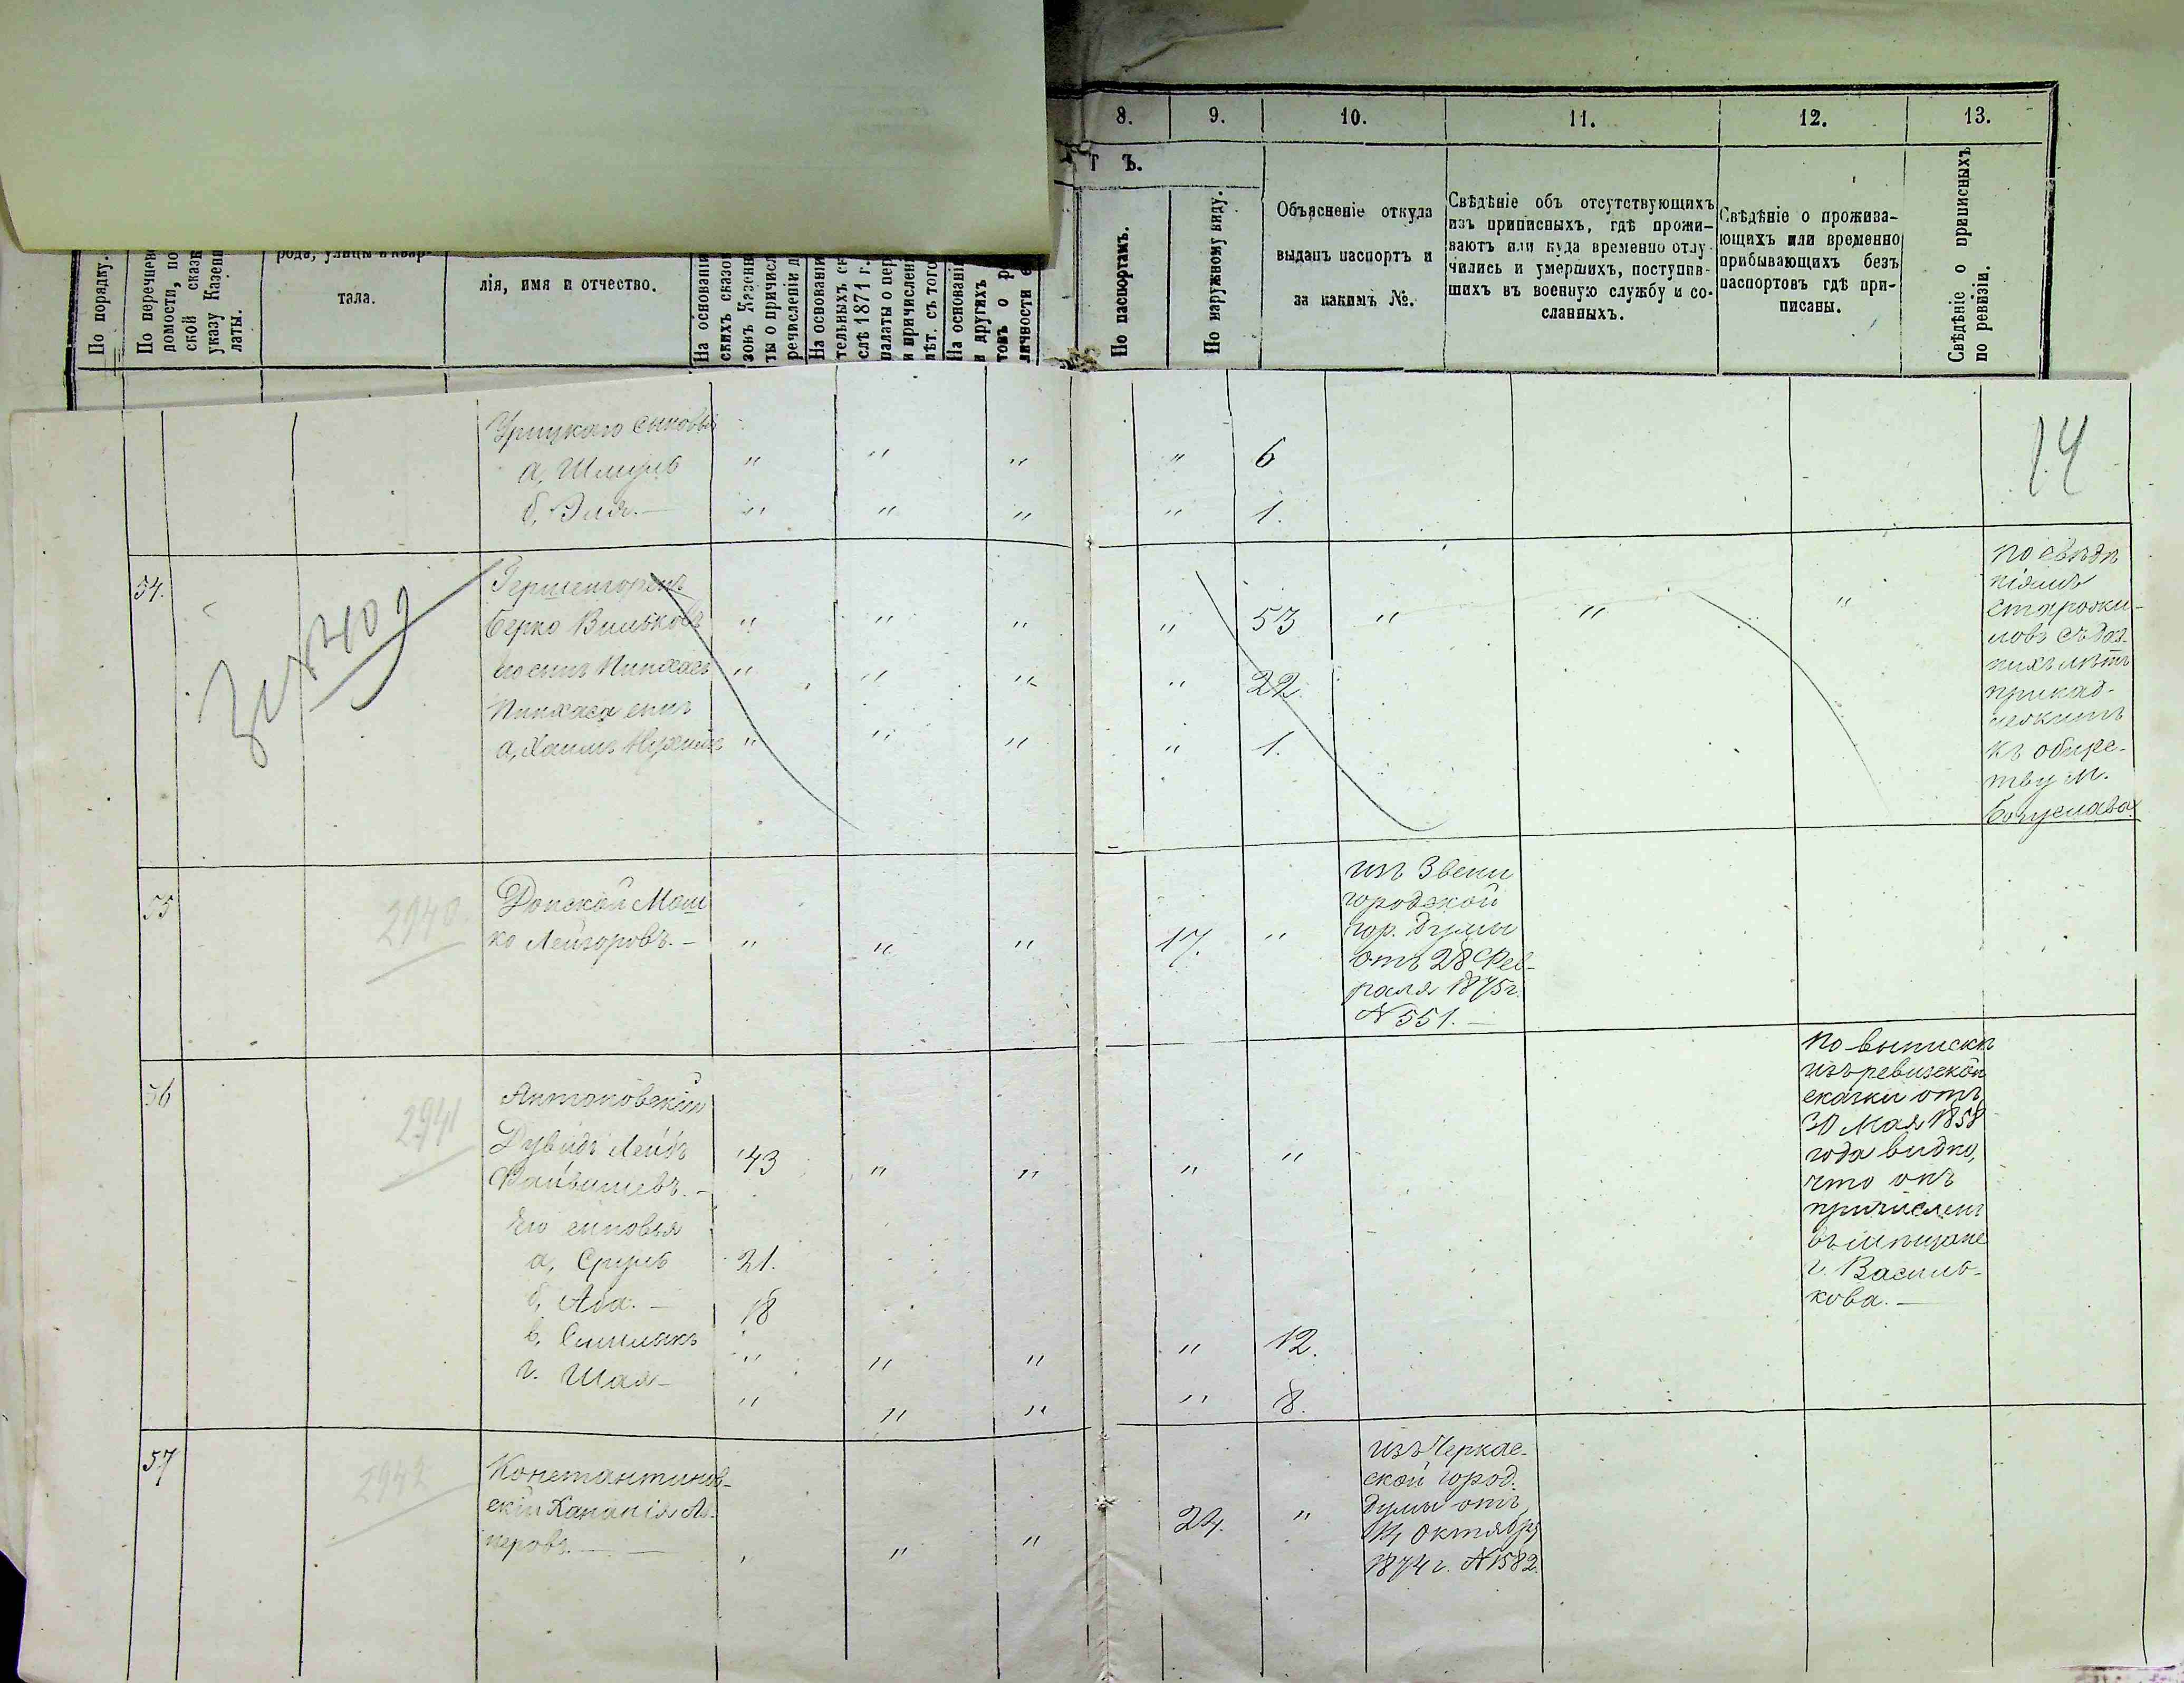 8. 9. 10. 11. 12. 13.
Т Ъ.
По порядку.
По перечне
домости, по
ской сказк
указу Казенн
латы.
рода, улицы и квар-
тала.
лія, имя и отчество.
На основани
скихъ сказо
зокъ Казенн
ты о причисл
речислении д
На основани
тельныхъ ск
слѣ 1871 г.
палаты о пер
и причислени
лѣт. съ того
На основани
и другихъ
товъ о р
личности е
По паспортамъ.
По наружному виду.
Объясненіе откуда
выданъ паспортъ и
за какимъ №.
Свѣдѣніе объ отсутствующихъ
изъ приписныхъ, гдѣ прожи-
ваютъ или куда временно отлу-
чились и умершихъ, поступив-
шихъ въ военную службу и со-
сланныхъ.
Свѣдѣніе о прожива-
ющихъ или временно
прибывающихъ безъ
паспортовъ гдѣ при-
писаны.
Свѣдѣніе о приписныхъ
по ревизіи.
14
Урицкаго сыновья
а, Шмуль " " " " 6
б, Эля.— " " " " 1.
54.
Берко Вильковъ " " " " 53 " " "
его сынъ Пинхасъ " " " " 22.
Пинхаса сынъ
а, Хаимъ Нухимъ " " " " 1.
по свѣдѣ
ніямъ
старожи-
ловъ съ дав-
нихъ лѣтъ
принад-
лежитъ
къ обще-
тву м.
Богуслава.
55 2940
Донской Мош
ко Лейзоровъ.— " " " 17. "
изъ Звени
городской
гор. Думы
отъ 28 Фев-
раля 1875 г.
№ 551.—
56 2941
Антоновскій
Дувидъ Лейбъ 43 " " " "
Вайвишевъ.—
Его сыновья
а, Сруль 21.
б, Аба.— 18
в, " " " " 12.
г. Шая— " " " " 8.
по выпискѣ
изъ ревизской
сказки отъ
30 Мая 1858
года видно,
что онъ
причисленъ
въ мѣщане
г. Василь-
кова.—
57 2942
Константинов-
скій Хананія Ал-
перовъ.— " " 24. "
изъ Черкас-
ской город.
Думы отъ
14 Октября
1874 г. № 1582.